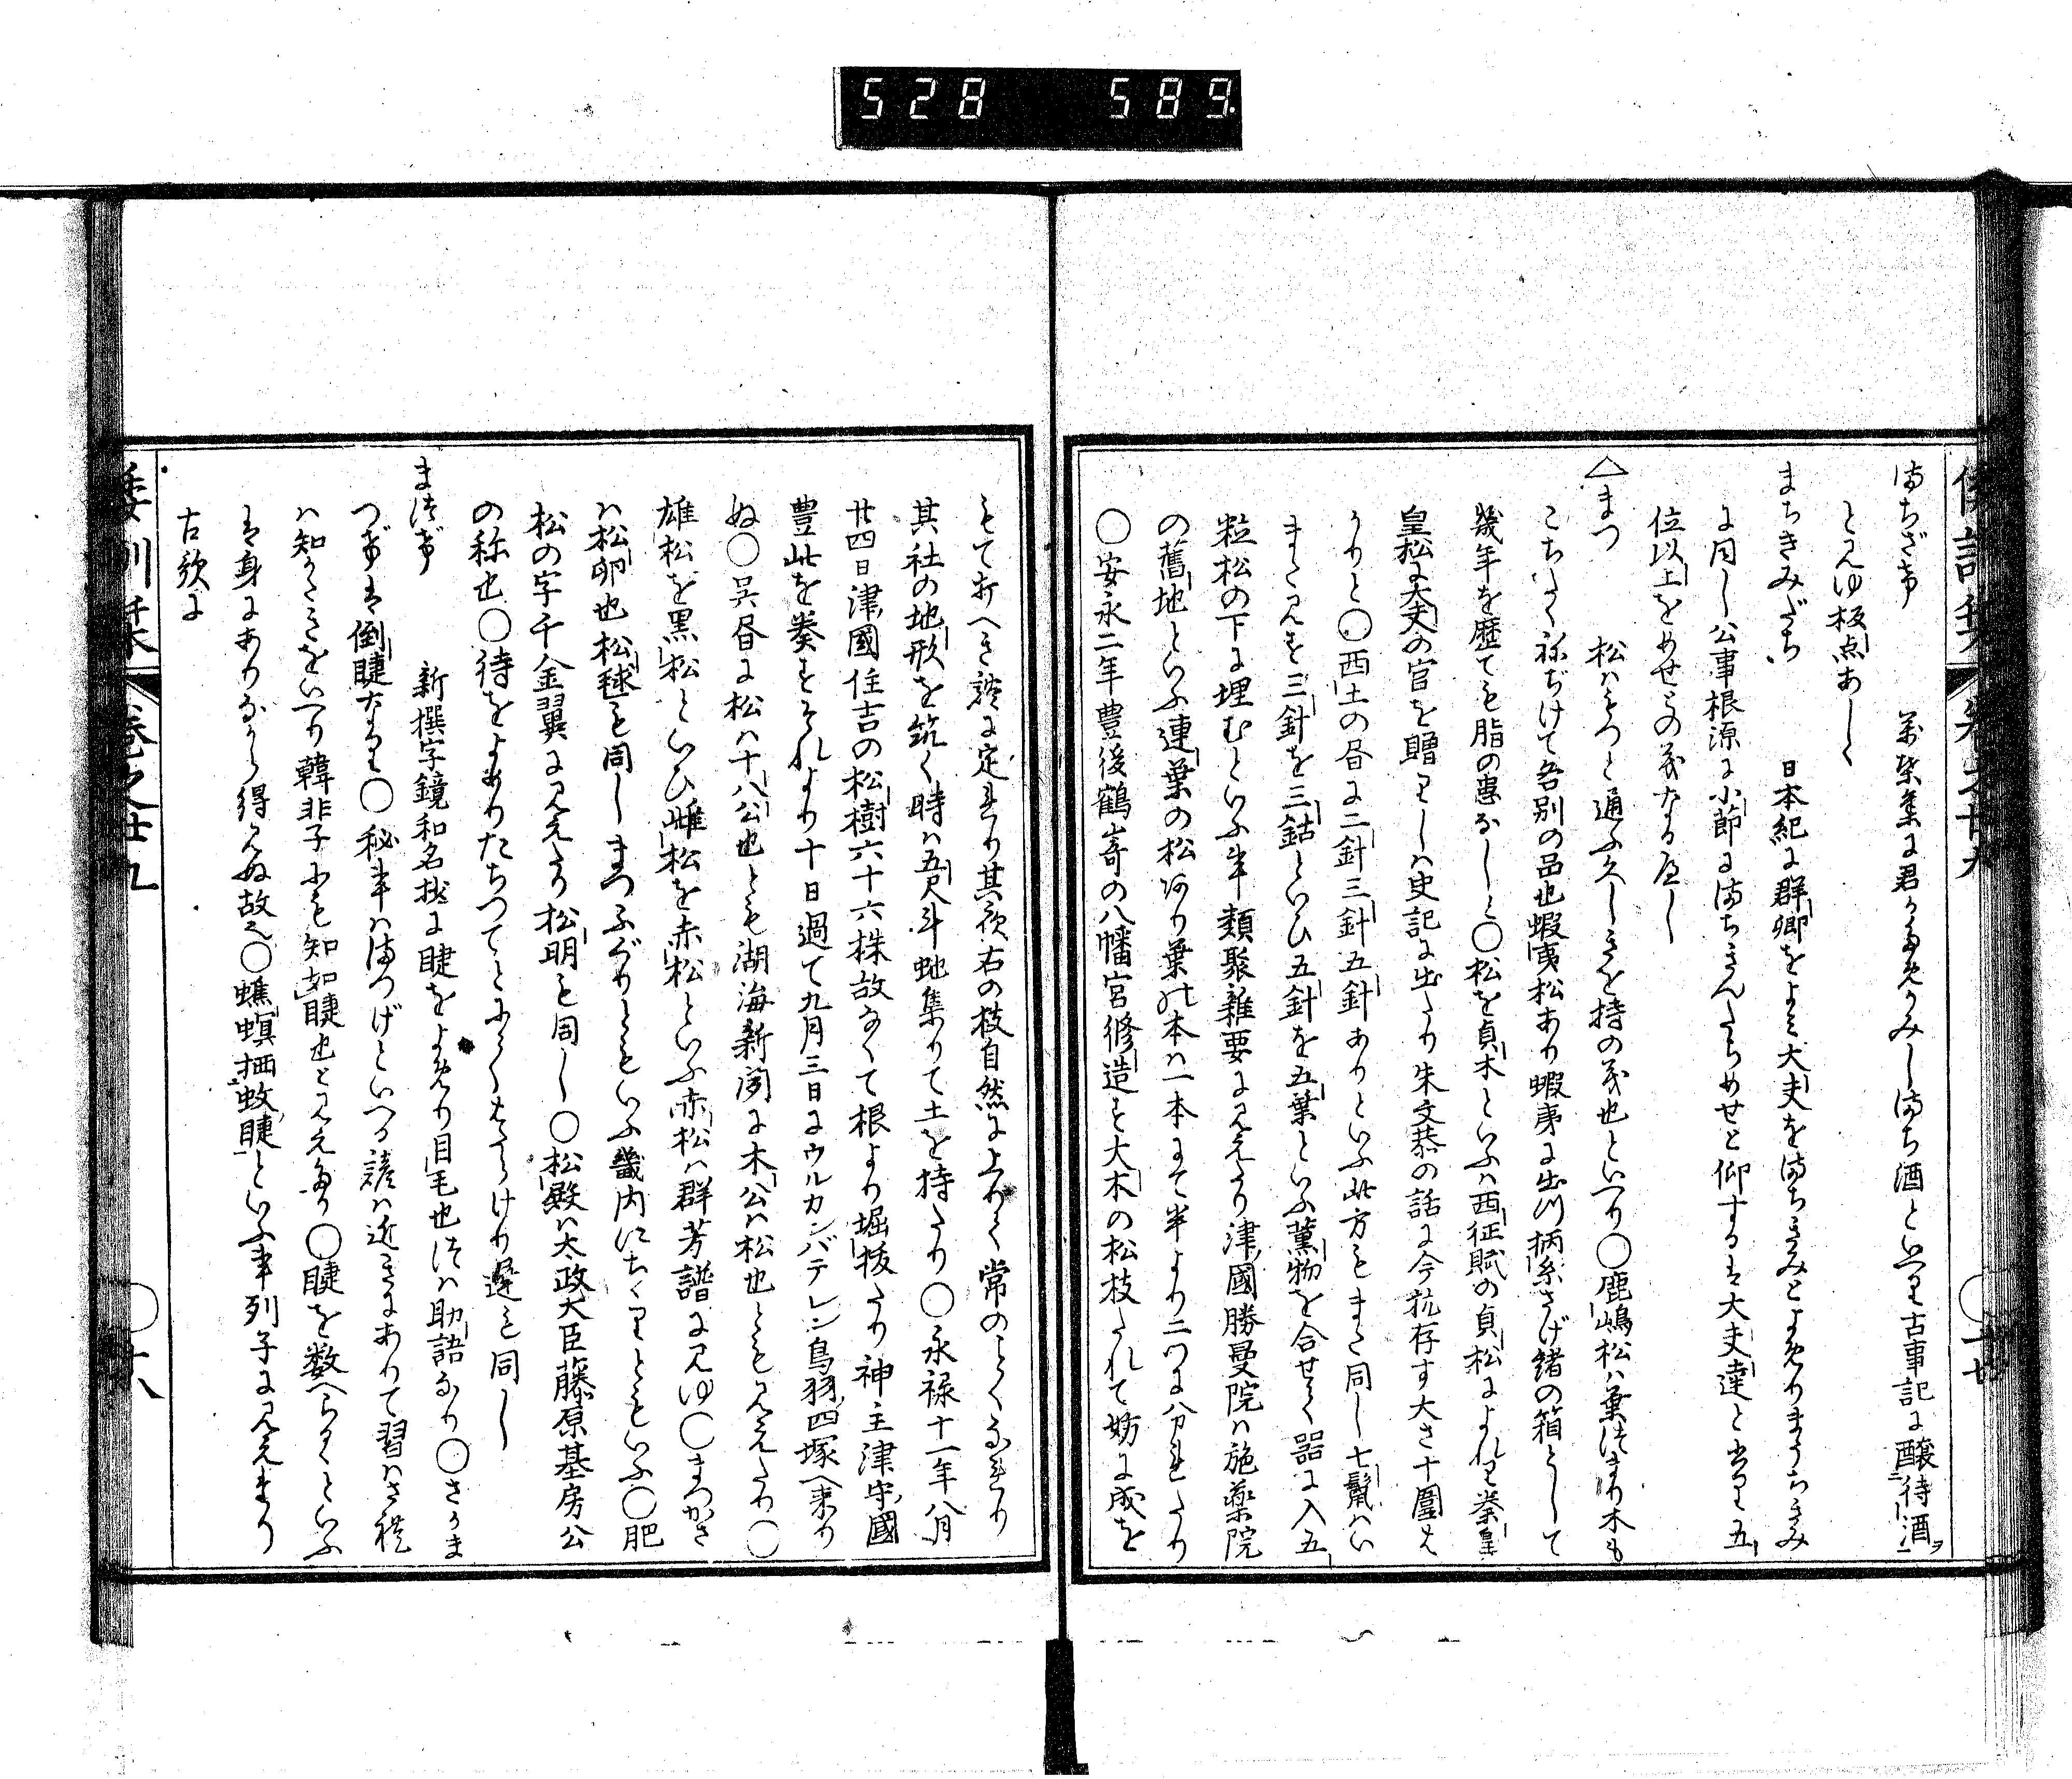 528 589
まちざけ 萬葉集に君がためかみしまち酒といへり古事記に醸待酒ヲ
とみゆ板点あしく
まちきみだち 日本紀に群卿をよみ大夫をまちきみとよめりまうちきみ
に同し公事根源に小節にまちきんたちめせと仰するは大夫達と書り五
位以上をめせとの義なるへし
△まつ 松はもつと通ふ久しきを持の義也といへり○鹿嶋松は葉つまり木も
こちたくねぢけて各別の品也蝦夷松あり蝦夷に出つ柄糸さげ緒の箱として
幾年を歴ても脂の患なしと○松を貞木といふは西征賦の貞松によれり秦皇
皇松に大夫の官を贈りしは史記に出たり朱文恭の話に今抗存す大さ十圍は
かりと○西土の昏に二針三針五針ありといふ此方もまた同し七鬣はい
またみす三針を三鈷といひ五針を五葉といふ薫物を合せて器に入五
粒松の下に埋むといふ事類聚雑要にみえたり津國勝曼院は施薬院
の舊地といふ連葉の松あり葉の本は一本にて半より二つに分れたり
○安永二年豊後鶴崎の八幡宮修造す大木の松枝たれて妨に成を
もて折へき談に定まり其夜右の枝自然に上りて常のことくなれり
其社の地形を筑く時は五尺斗虵集りて土を持たり○永禄十一年八月
廿四日津國住吉の松樹六十六株故なくて根より堀抜たり神主津守國
豊此を奏すそれより十日過て九月三日にウルカンバテレン鳥羽四塚へ来り
ぬ○呉昏に松は十八公也とも湖海新聞に木公は松也ともみえたり○
雄松を黒松といひ雌松を赤松といふ赤松は群芳譜にみゆ○まつかさ
は松卵也松毬も同しまつふぐりともいふ畿内にちゝりともいふ○肥
松の字千金翼にみえたり松明も同し○松殿は太政大臣藤原基房公
の称也○待をよめりたちつてとにてはたらけり遅も同し
まつげ 新撰字鏡和名抄に睫をよめり目毛也つは助語なり○さかま
つげは倒睫なり○秘事はまつげといへる諺は近きにありて習はされ
は知かたきをいへり韓非子にも知如睫也とみえたり○睫を数へらるといふ
は身にありながら得みぬ故也○蟭螟栖蚊睫といふ事列子にみえたり
古歌に
倭訓栞 巻之廿九 ○十八